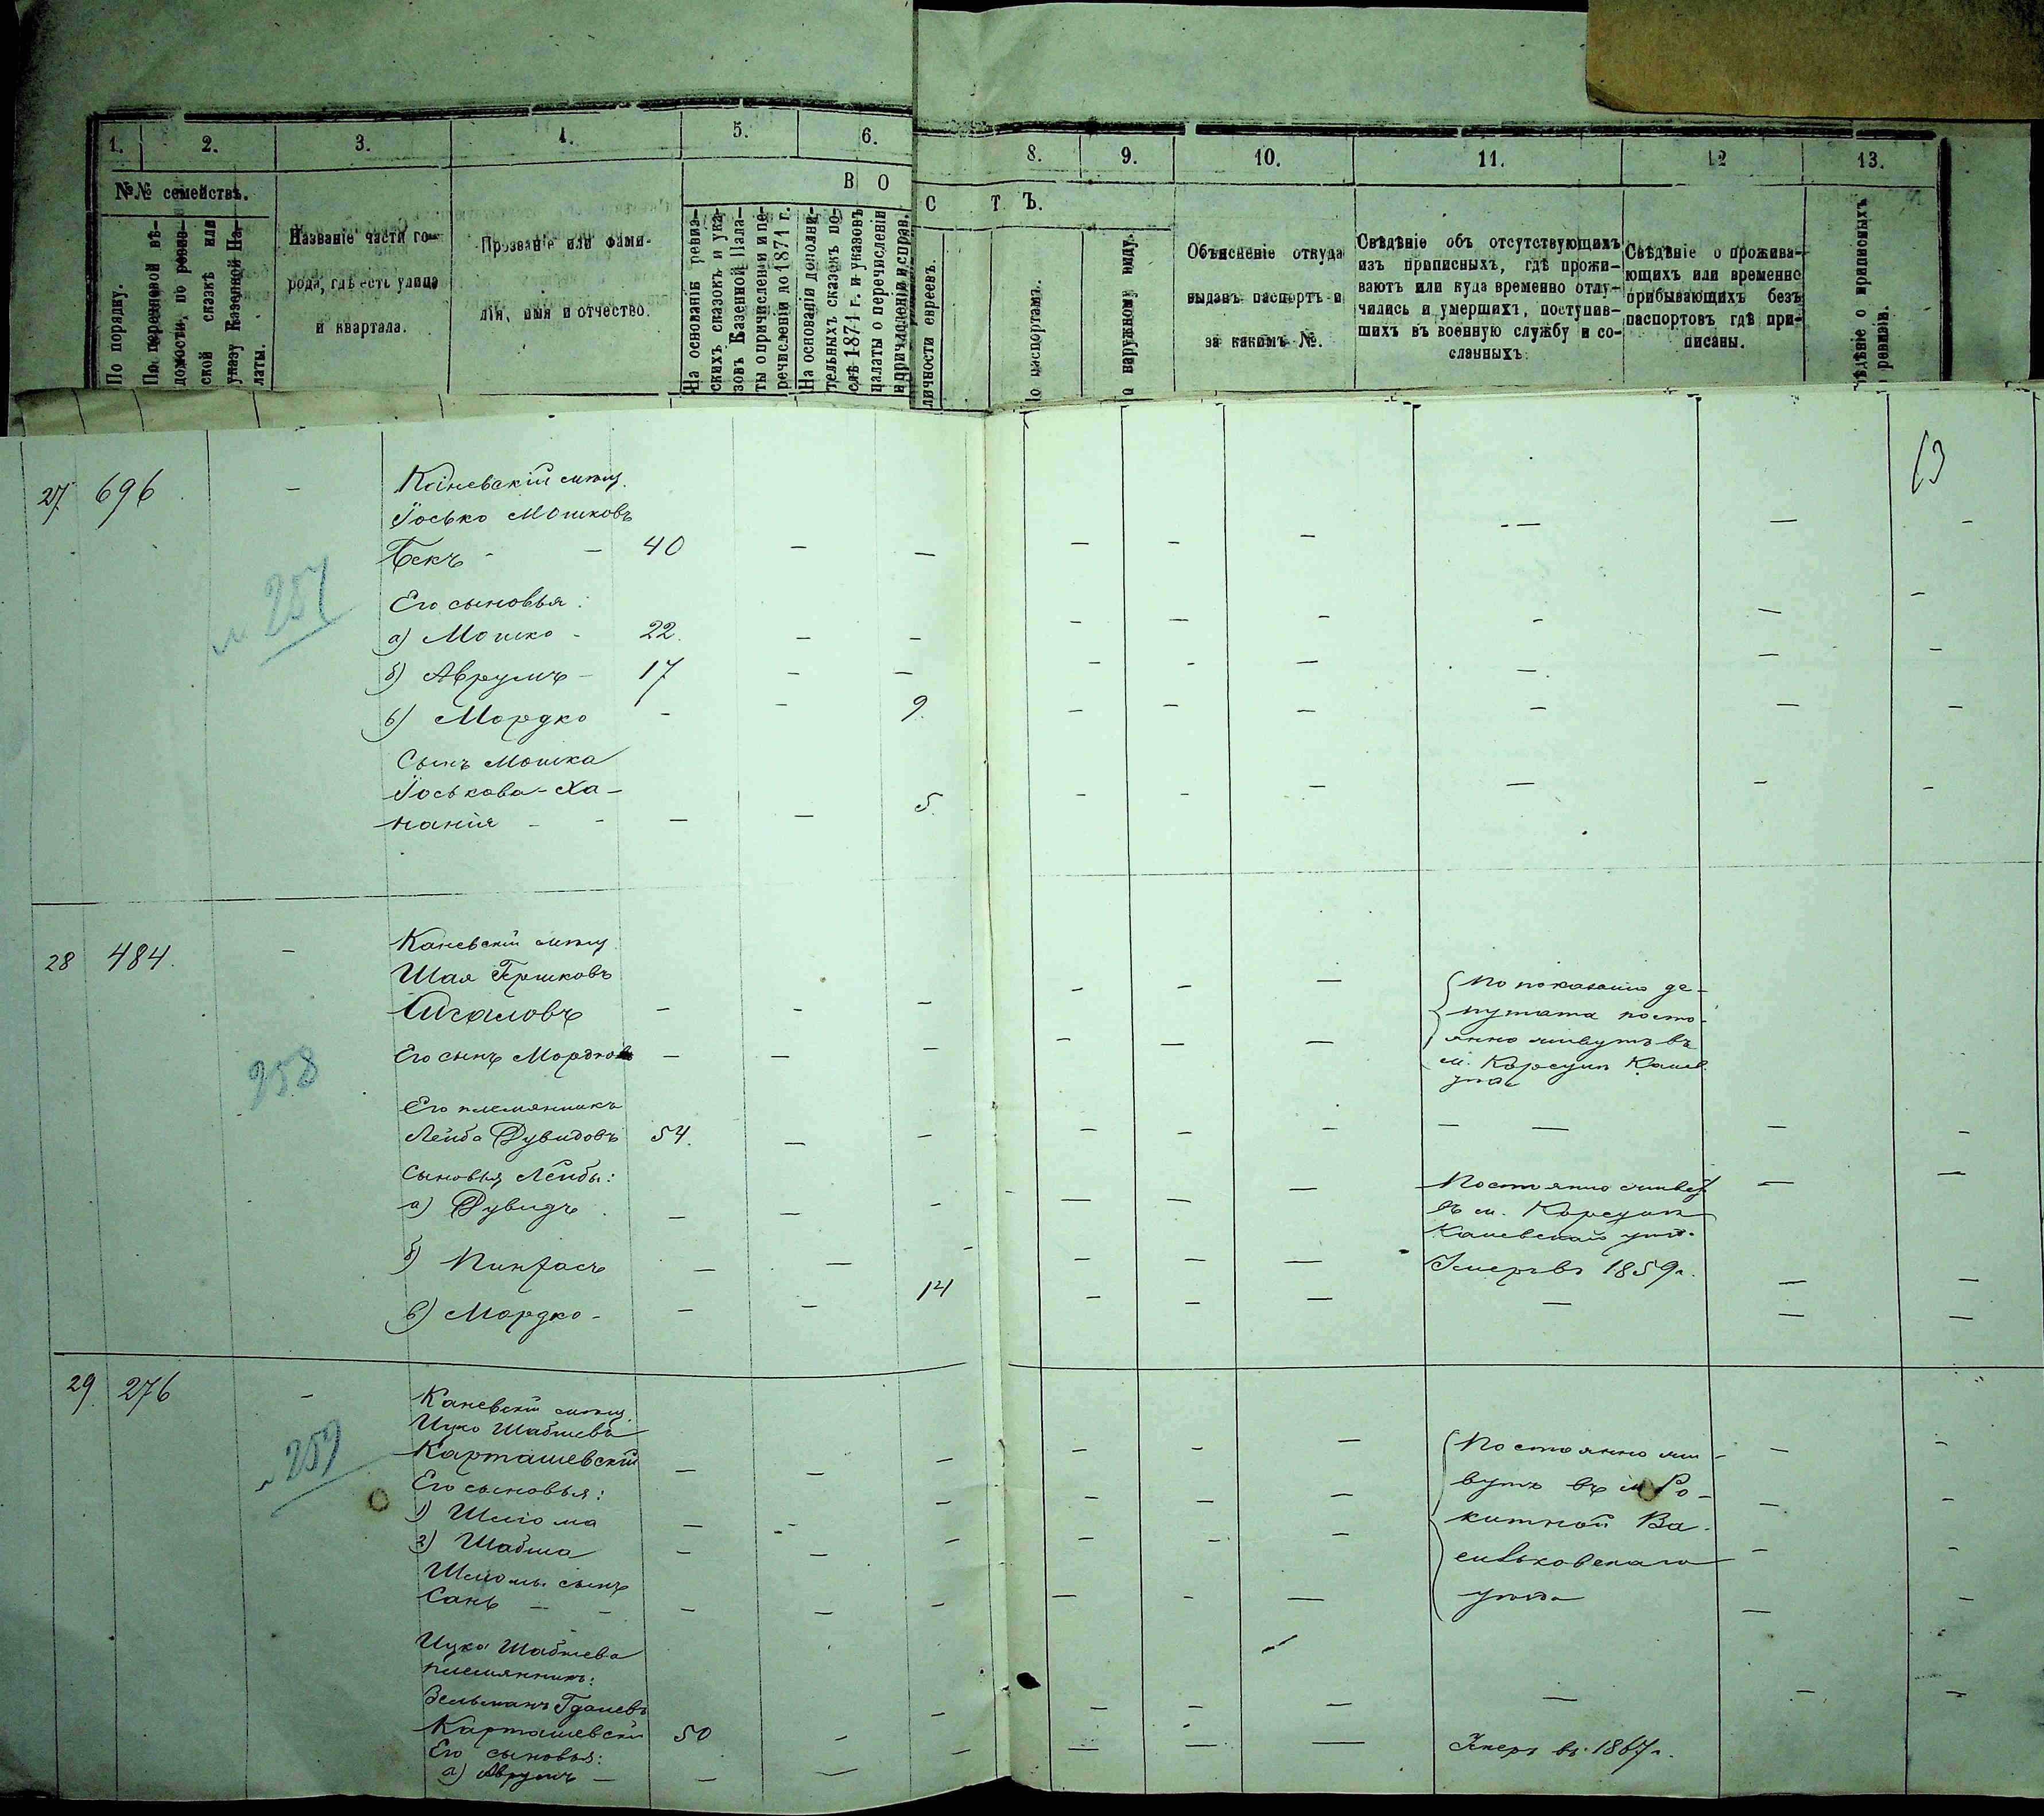 1. 2. 3. 4. 5. 6. 8. 9. 10. 11. 12 13.
№№ семействъ.
В О С Т Ъ.
По порядку.
По перечневой вѣ-
домости, по ревиз-
ской сказкѣ или
указу Казенной Па-
латы.
Названіе части го-
рода, гдѣ есть улица
и квартала.
Прозваніе или фами-
лія, имя и отчество.
На основаніи ревиз-
скихъ сказокъ и ука-
зовъ Казенной Пала-
ты о причисленіи и пе-
речисленіи до 1871 г.
На основаніи дополни-
тельныхъ сказокъ по-
слѣ 1871 г. и указовъ
палаты о перечисленіи
и причисленіи и справ.
личности евреевъ.
о паспортамъ.
о наружному виду.
Объясненіе откуда
выданъ паспортъ и
за какимъ №.
Свѣдѣніе объ отсутствующихъ
изъ приписныхъ, гдѣ прожи-
ваютъ или куда временно отлу-
чились и умершихъ, поступив-
шихъ въ военную службу и со-
сланныхъ
Свѣдѣніе о прожива-
ющихъ или временно
прибывающихъ безъ
паспортовъ гдѣ при-
писаны.
ѣдѣніе о приписныхъ
ревизіи.
13
27. 696. — Каневскій мѣщ.
Іосько Мошковъ
Бекъ - — 40 — — — — — — — —
№ 257
Его сыновья:
а) Мошко - 22. — — — — — - — —
б) Аврумъ - 17 — — — - — — — —
в) Мордко - - 9. — — — — — —
Сынъ Мошка
Іоськова-Ха-
нанія - - — — 5. — — — — — —
28 484. — Каневскій мѣщ.
Шая Гершковъ
Сигаловъ — — — — — — По показанію де-
путата посто-
янно живутъ въ
м. Корсунѣ Канев.
уѣзда
Его сынъ Мордко — — — — — —
258
Его племянникъ
Лейба Дувидовъ 54. — — — — — — — — —
Сыновья Лейбы:
а) Дувидъ — — — — — — Постоянно живет
въ м. Корсунѣ
Каневскаго уѣз. — —
б) Пинхасъ — — - — — — Умеръ въ 1859 г. — —
в) Мордко - — — 14 — — — — — —
29. 276 — Каневскій мѣщ.
Ицко Шабшевъ
Карташевскій — — — — — — Постоянно жи-
вутъ въ м. Ро-
китной Ва-
сильковскаго
уѣзда
№ 259
Его сыновья:
1) Шлиома — — — — — — — —
2) Шабша — — — — — — — —
Шлиомы сынъ
Санъ — — — — — — - — — —
Ицка Шабшева
племянникъ:
Зельманъ Гдалевъ
Карташевскій 50 — — — — — — — —
Его сыновья:
а) Аврумъ — — — — — — — Умеръ въ 1867 г.